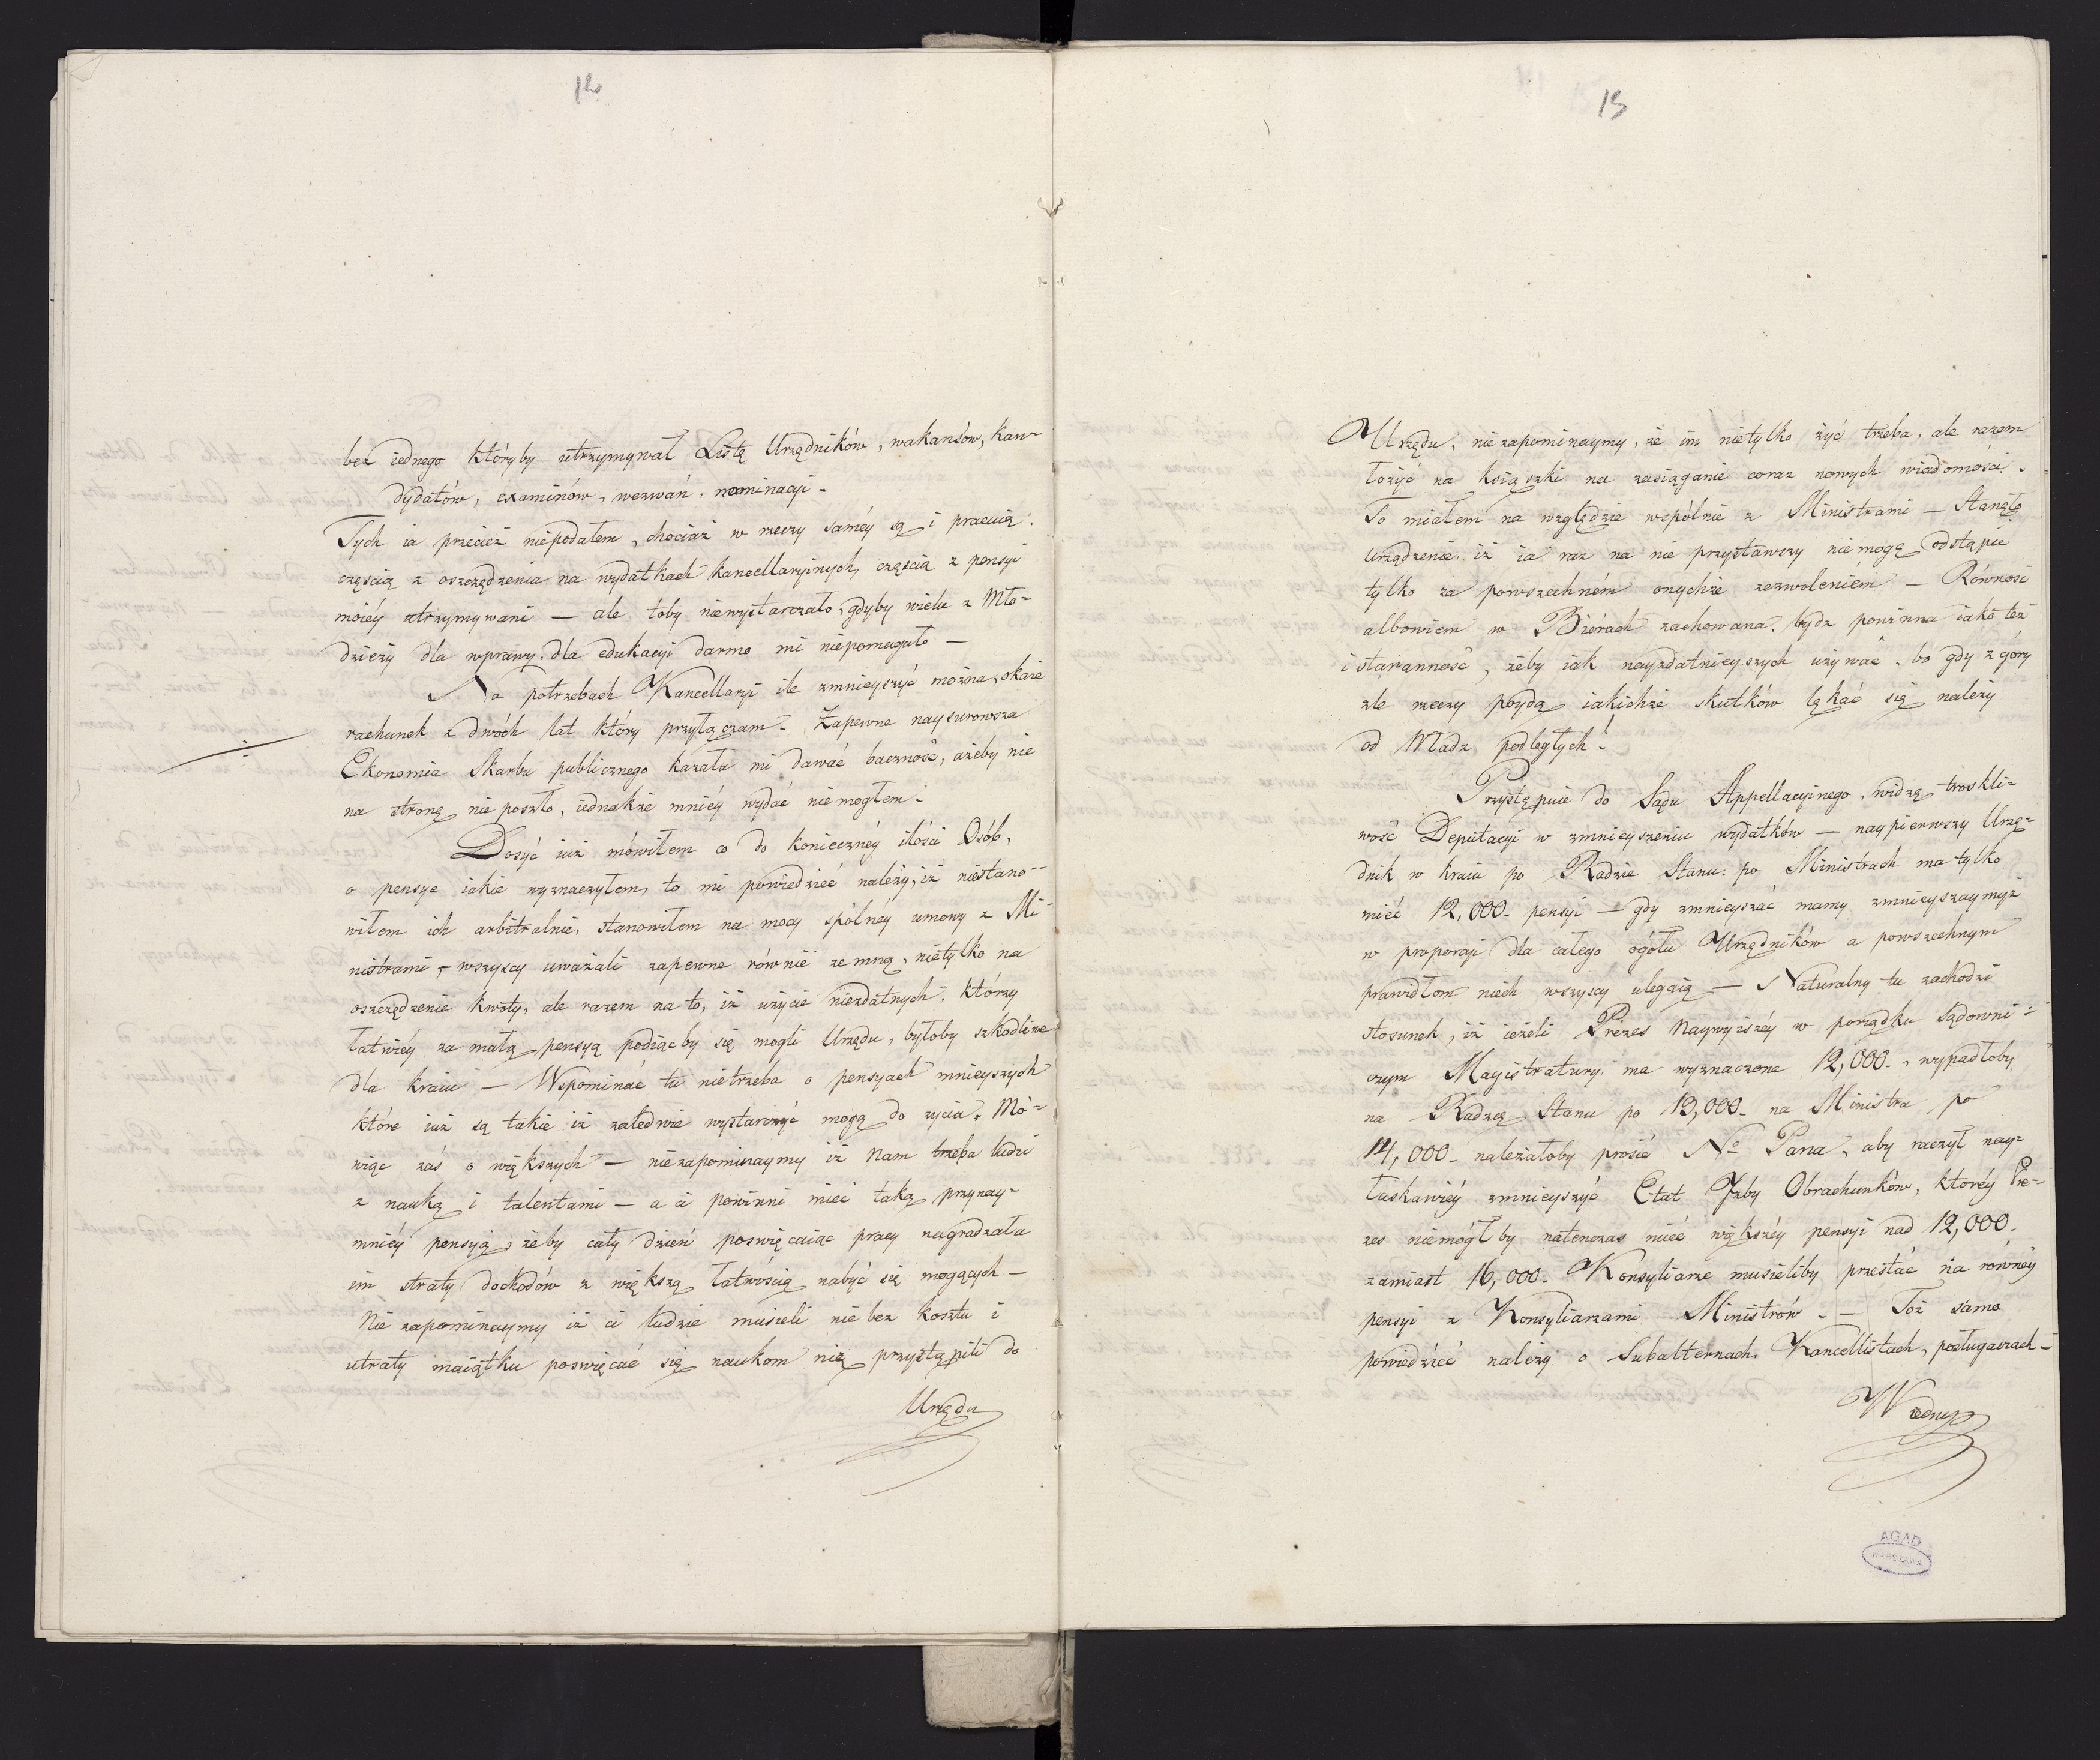 12
bez iednego któryby utrzymywał Listę Urzędników, wakansów, kan-
dydatów, examinów, wezwań, nominacyi -
Tych ia przecież niepodałem, chociaż w rzeczy saméy są i pracuią.
częścią z oszczędzenia na wydatkach kancellaryinych, częścią z pensyi
moiéy utrzymywani — ale toby niewystarczało, gdyby wielu z Mło-
dzieży dla wprawy, dla edukacyi darmo mi niepomagało —
Na potrzebach Kancellaryi ile zmnieyszyć można, okaże
rachunek z dwóch lat który przyłączam. Zapewne naysurowsza
Ekonomia Skarbu publicznego kazała mi dawać baczność, ażeby nie
na stronę nie poszło, iednakże mniéy wydać niemogłem.
Dosyć iuż mówiłem co do konieczney ilości Osób,
o pensye iakie wyznaczyłem, to mi powiedzieć należy, iż niestano-
wiłem ich arbitralnie, stanowiłem na mocy spólnéy umowy z Mi-
nistrami, wszyscy uważali zapewne równie ze mną, nietylko na
oszczędzenie kwoty, ale razem na to, iż użycie niezdatnych, którzy
łatwiéy za małą pensyą podiąćby się mogli Urzędu, byłoby szkodliwe
dla kraiu — Wspominać tu nietrzeba o pensyach mnieyszych
które iuż są takie iż zaledwie wystarczyć mogą do życia. Mó-
wiąc zaś o większych — niezapominaymy iż Nam trzeba ludzi
z nauką i talentami — a ci powinni mieć taką przynay-
mniéy pensyią, żeby cały dzień poswięcaiąc pracy nagradzała
im straty dochodów z większą łatwością nabyć się mogących —
Nie zapominaymy iż ci ludzie musieli nie bez kosztu i
utraty maiątku poswięcać się naukom nię przystąpili do
Urzędu
13
Urzędu, nie zapominaymy, że im nietylko żyć trzeba, ale razem
łożyć na książki na zasiąganie coraz nowych wiadomosci.
To miałem na względzie wspólnie z Ministrami — Stanęło
urządzenie, iż ia raz na nie przystawszy nie mogę odstąpić
tylko za powszechném onychże zezwoleniém — Równość
albowiem w Biórach zachowana bydz powinna iako też
i staranność, żeby iak nayzdatnieyszych używać, bo gdy z góry
złe rzeczy poydą iakichże skutków lękać się należy
od Władz podległych!
Przystępuię do Sądu Appellacyinego, widzę troskli-
wość Deputacyi w zmnieyszeniu wydatków — naypierwszy Urzę-
dnik w kraiu po Radzie Stanu, po Ministrach ma tylko
mieć 12,000. pensyi — gdy zmnieyszać mamy zmnieyszaymyż
w proporcyi dla całego ogółu Urzędników a powszechnym
prawidłom niech wszyscy ulegaią — Naturalny tu zachodzi
stosunek, iż ieżeli Prezes Naywyższéy w porządku Sądowni-
czym Magistratury, ma wyznaczone 12,000., wypadłoby
na Radzcę Stanu po 13,000. na Ministra po
14,000. należałoby prosić No Pana, aby raczył nay-
łaskawiéy zmnieyszyć Etat Izby Obrachunków, którey Pre-
zes niemógłby natenczas mieć większéy pensyi nad 12,000.
zamiast 16,000. Konsyliarze musieliby przestać na równéy
pensyi z Konsyliarzami Ministrów. — Toż samo
powiedzieć należy o Subalternach, Kancellistach, posługaczach —
Według
AGAD
WARSZAWA